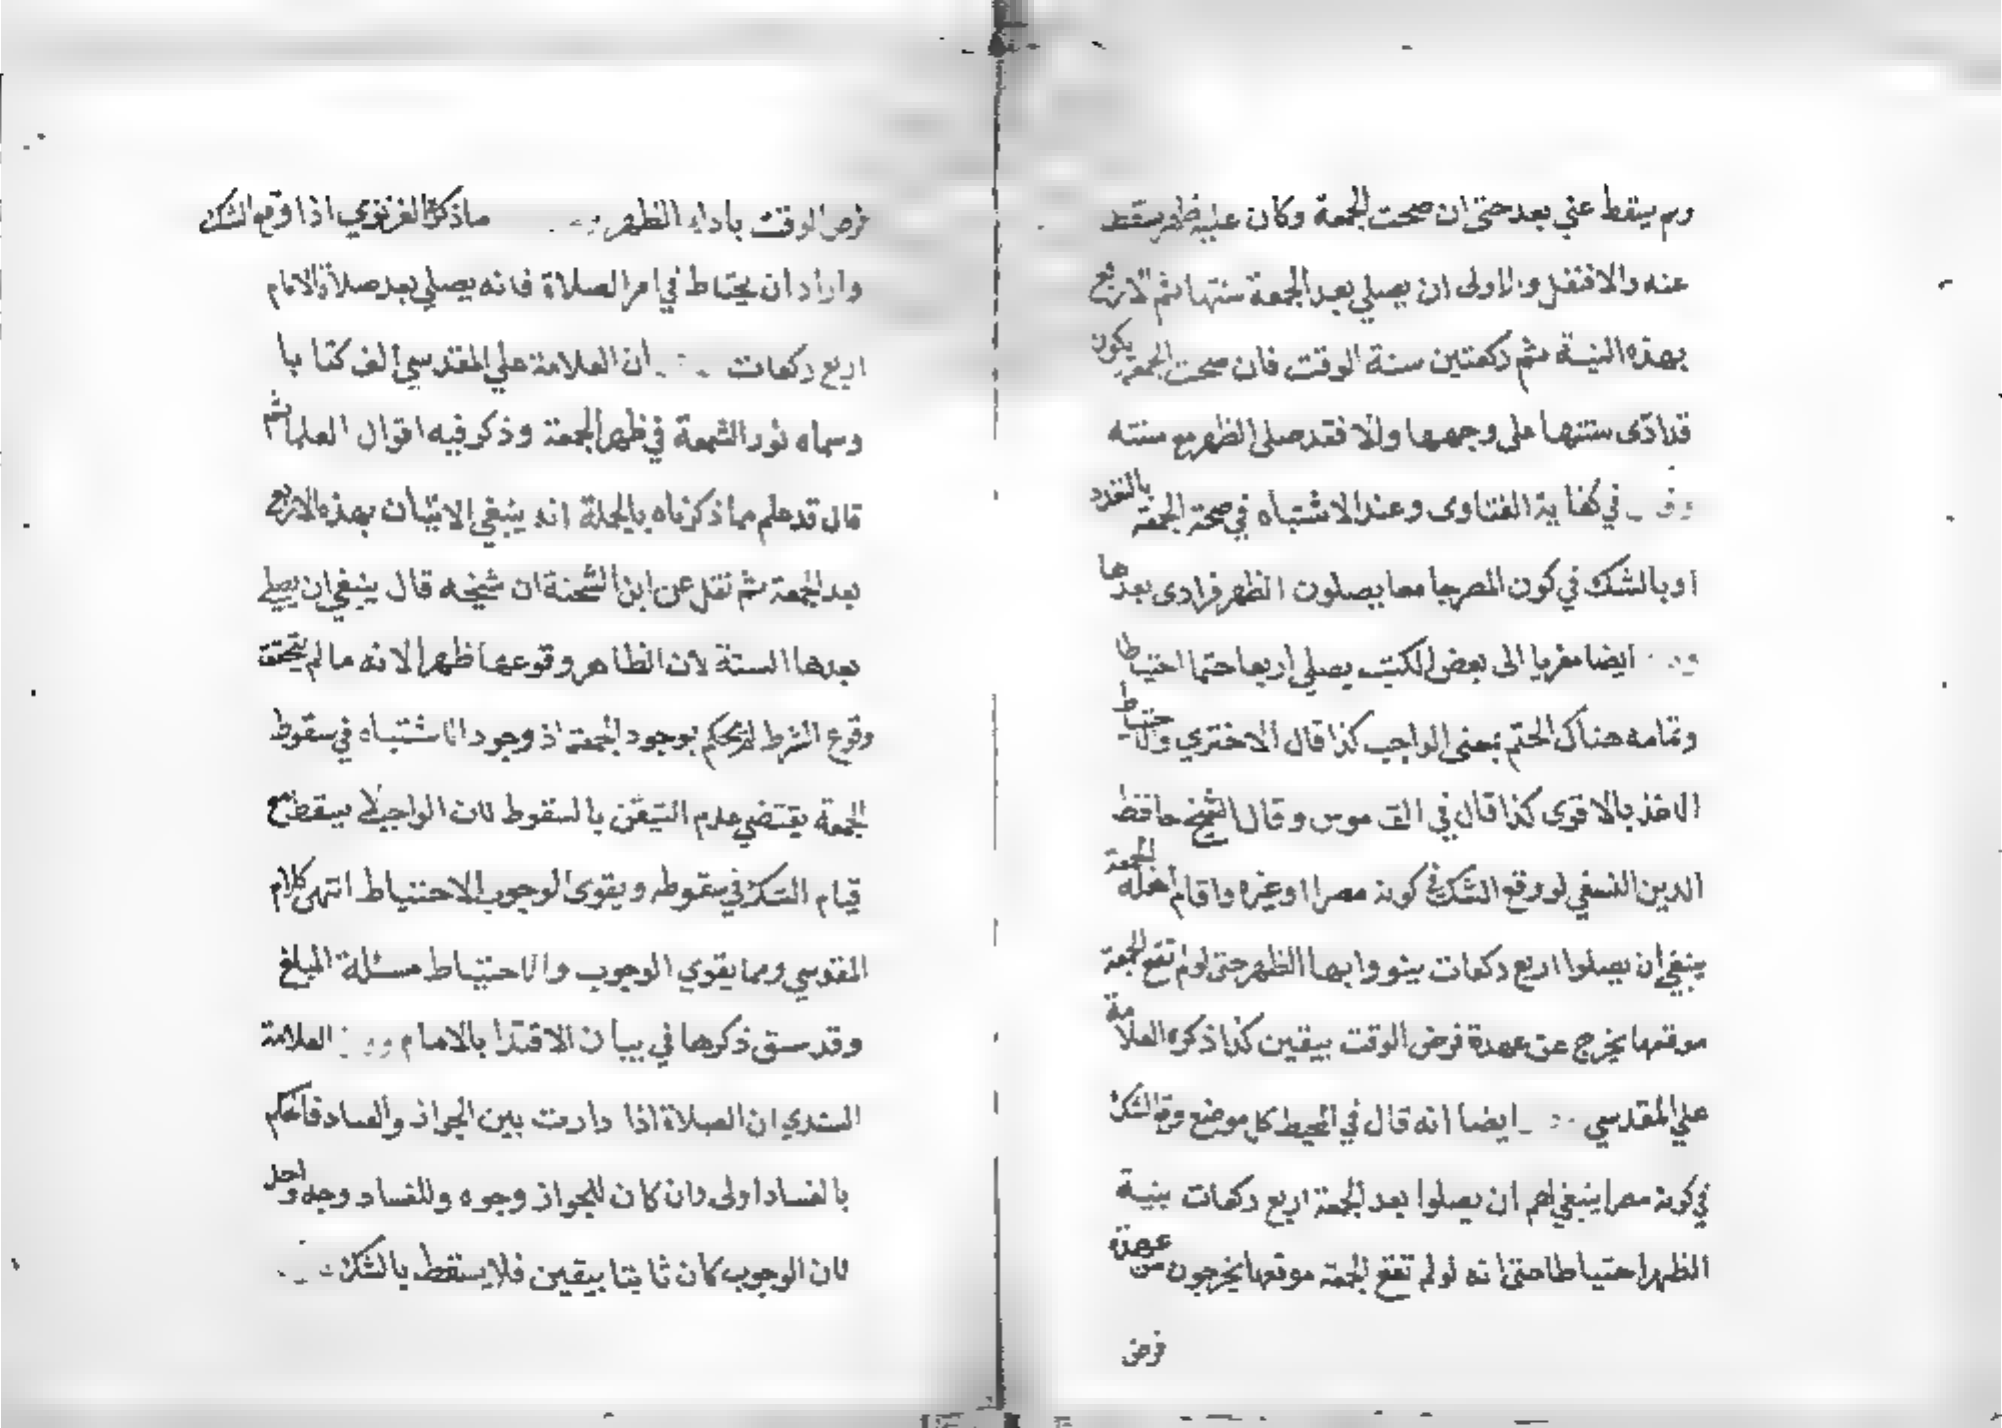 ولم يسقط عني بعد حتى ان صحت الجمعة وكان عليه ظهر يسقط
عنه والافنفل والاولى ان يصلي بعد الجمعة سنتها ثم الاربع
بهذه النية ثم ركعتين سنة الوقت فان صحت الجمعة يكون
قد ادى سنتها على وجهها والا فقد صلى الظهر مع سنته
في كفاية الفتاوى وعند الاشتباه في صحة الجمعة بالتعدد
او بالشك في كون المصر جامعا يصلون الظهر فرادى بعدها
ايضا معزيا الى بعض الكتب يصلي اربعا حتما احتياطا
وتمامه هناك الحتم بمعنى الواجب كذا قال الاختري والاحتياط
الاخذ بالاقوى كذا قال في القاموس وقال الشيخ حافظ
الدين النسفي لو وقع الشك في كونه مصرا اوغيره واقام اهله الجمعة
ينبغي ان يصلوا اربع ركعات ينووا بها الظهر حتى لو لم تقع الجمعة
موقعها يخرج عن عهدة فرض الوقت بيقين كذا ذكره العلامة
علي المقدسي ايضا انه قال في المحيط كل موضع وقع الشك
في كونه مصرا ينبغي لهم ان يصلوا بعد الجمعة اربع ركعات بنية
الظهر احتياطا حتى انه لو لم تقع الجمعة موقعها يخرجون عن عهدة
فرض
فرض الوقت باداء الظهر ما ذكره الغزنوي اذا وقع الشك
واراد ان يحتاط في امر الصلاة فانه يصلي بعد صلاة الامام
اربع ركعات ان العلامة علي المقدسي الف كتابا
وسماه نور الشمعة في ظهر الجمعة وذكر فيه اقوال العلما ثم
قال قد علم مما ذكرناه بالجملة انه ينبغي الاتيان بهذه الاربع
بعد الجمعة ثم نقل عن ابن الشحنة ان شيخه قال ينبغي ان يصلي
بعدها السنة لان الظاهر وقوعها ظهرا لانه ما لم يتحقق
وقوع الشرط لم يحكم بوجود الجمعة اذ وجود الاشتباه في سقوط
الجمعة يقتضي عدم التيقن بالسقوط لان الواجب لا يسقط مع
قيام الشك في سقوطه ويقوى الوجوب الاحتياط انتهى كلام
المقدسي ومما يقوي الوجوب والاحتياط مسئلة المبلغ
وقد سبق ذكرها في بيان الاقتدا بالامام العلامة
السندي ان الصلاة اذا دارت بين الجواز والفساد فالحكم
بالفساد اولى وان كان للجواز وجوه وللفساد وجه واحد
لان الوجوب كان ثابتا بيقين فلا يسقط بالشك